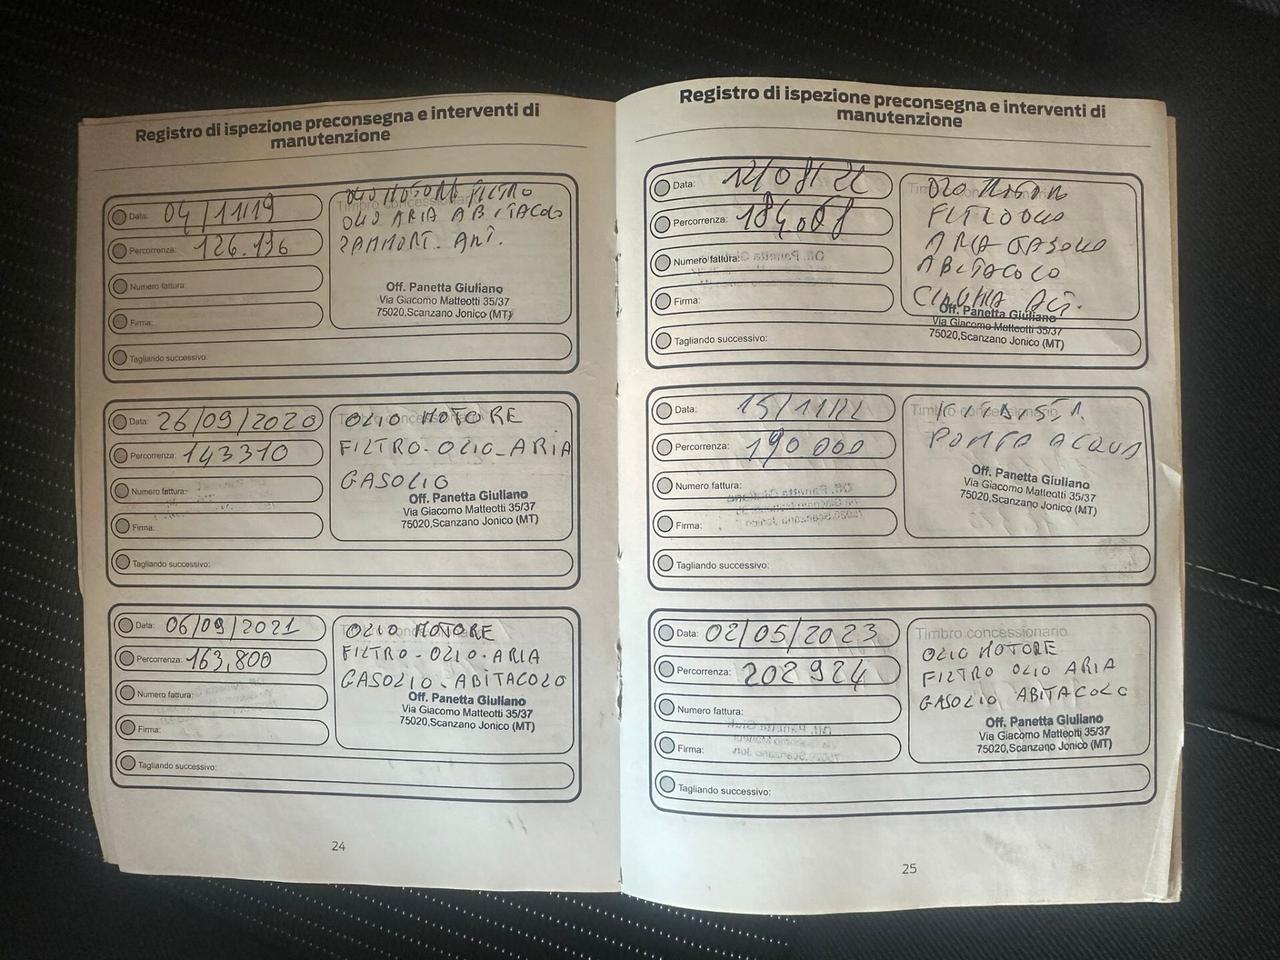 Registro di ispezione preconsegna e interventi di
manutenzione
Data: 04/11/19
Percorrenza: 126.136
Numero fattura:
Firma:
Tagliando successivo:
Timbro concessionario
OLIO MOTORE FILTRO
OLIO ARIA ABITACOLO
2AMMORT. ANT.
Off. Panetta Giuliano
Via Giacomo Matteotti 35/37
75020,Scanzano Jonico (MT)
Data: 26/09/2020
Percorrenza: 143310
Numero fattura:
Firma:
Tagliando successivo:
Timbro concessionario
OLIO MOTORE
FILTRO-OLIO-ARIA
GASOLIO
Off. Panetta Giuliano
Via Giacomo Matteotti 35/37
75020,Scanzano Jonico (MT)
Data: 06/09/2021
Percorrenza: 163.800
Numero fattura:
Firma:
Tagliando successivo:
Timbro concessionario
OLIO MOTORE
FILTRO-OLIO-ARIA
GASOLIO-ABITACOLO
Off. Panetta Giuliano
Via Giacomo Matteotti 35/37
75020,Scanzano Jonico (MT)
24
Registro di ispezione preconsegna e interventi di
manutenzione
Data: 12/08/22
Percorrenza:
Numero fattura:
Firma:
Tagliando successivo:
Timbro concessionario
OLIO MOTORE
FILTRO OLIO
ARIA GASOLIO
ABITACOLO
CINGHIA
Off. Panetta Giuliano
Via Giacomo Matteotti 35/37
75020,Scanzano Jonico (MT)
Data: 15/11/22
Percorrenza: 190 000
Numero fattura:
Firma:
Tagliando successivo:
Timbro concessionario
POMPA ACQUA
Off. Panetta Giuliano
Via Giacomo Matteotti 35/37
75020,Scanzano Jonico (MT)
Data: 02/05/2023
Percorrenza: 202924
Numero fattura:
Firma:
Tagliando successivo:
Timbro concessionario
OLIO MOTORE
FILTRO OLIO ARIA
GASOLIO ABITACOLO
Off. Panetta Giuliano
Via Giacomo Matteotti 35/37
75020,Scanzano Jonico (MT)
25